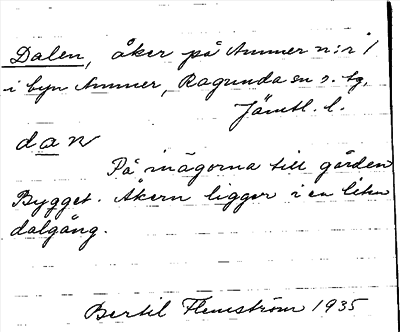 Dalen, åker på Ammer n:r 1
i byn Ammer, Ragunda sn o. tg,
Jämtl. l.
dan
På inägorna till gården
Bygget. Åkern ligger i en liten
dalgång.
Bertil Flemström 1935